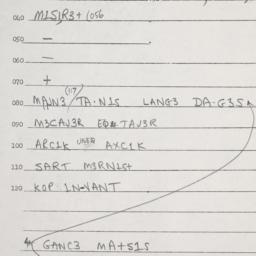 040 M1S1R3+ (056
050 —
060 —
070 +
(117)
080 MAIN3/TA·N1S LANG3 DA·G3S
090 M3CAV3R EQ#TAV3R
100 ARC1K AXC1K
110 SART M3RN1S+
120 KOP 1N-VANT
GANC3 MA+S1S